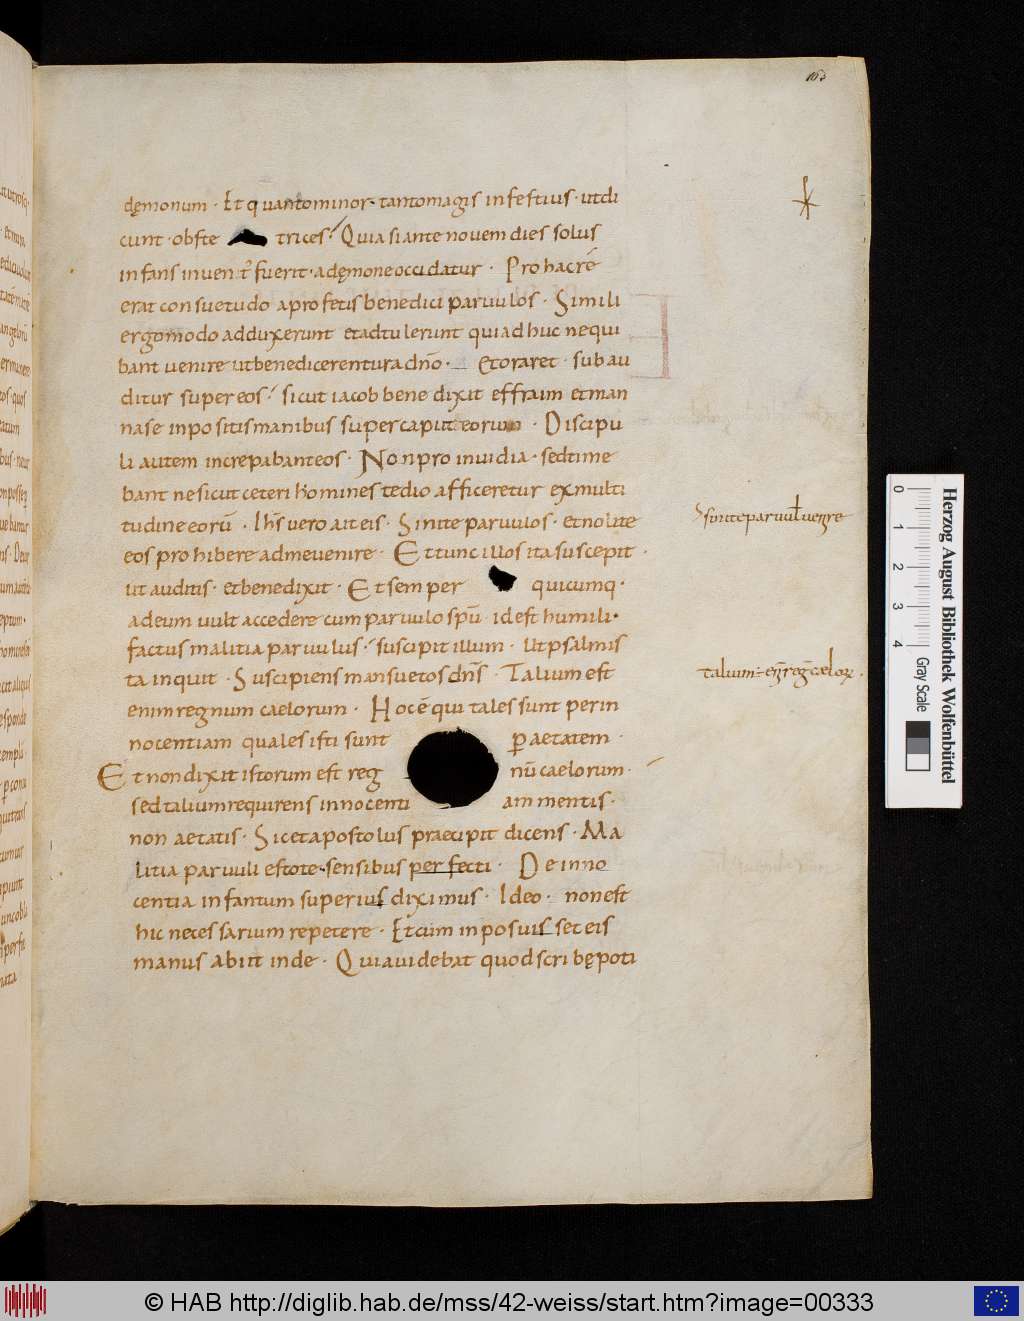 163
dęmonum · Et quanto minor · tanto magis infestius · ut di
cunt · obste trices · Quia si ante novem dies solus
infans invent̄ fuerit · a dęmone occidatur · Pro hac ré
erat consuetudo a profetis benedici parvulos · Simili
ergo modo adduxerunt et adtulerunt qui adhuc nequi
bant venire ut benedicerentur a dn̄o · et oraret · subau
ditur super eos · sicut iacob benedixit effraim et man
nase inpositis manibus super caput eorum · Discipu
li autem increpabant eos · Non pro invidia · sed time
bant ne sicut ceteri homines tedio afficeretur ex multi
tudine eorū · Ih̄s vero ait eis · Sinite parvulos · et nolite
eos prohibere ad me venire · Et tunc illos ita suscepit ·
ut auditis · et benedixit · Et semper quicumq ·
ad eum vult accedere cum parvulo sp̄u · id est humili ·
factus malitia parvulus · suscipit illum · Ut psalmis
ta inquit · Suscipiens mansuetos dn̄s · Talium est
enim regnum caelorum · Hoc ē qui tales sunt per in
nocentiam quales isti sunt ꝑ aetatem ·
Et non dixit istorum est reg nū caelorum ·
sed talium requirens innocenti am mentis ·
non aetatis · Sicet apostolus praecipit dicens · Ma
litia parvuli estote · sensibus perfecti · De inno
centia infantum superius diximus · Ideo · non est
hic necessarium repetere · Et cum inposuisset eis
manus abiit inde · Quia videbat quod scribę poti
sinite parvul venire
talium ÷ en̄ reg̅ caeloꝝ ·
0 1 2 3 4
Gray Scale
Herzog August Bibliothek Wolfenbüttel
© HAB http://diglib.hab.de/mss/42-weiss/start.htm?image=00333